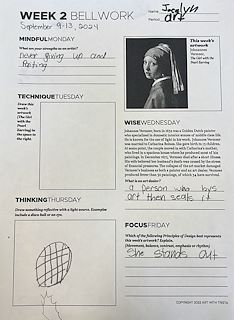 WEEK 2 BELLWORK
Name Jocelyn
Period art
September 9-13, 2024
MINDFULMONDAY
What are your strengths as an artist?
never giving up and
This week's
artwork
Johannes
Vermeer,
The Girl with the
Pearl Earring
TECHNIQUETUESDAY
Draw this
week's artwork
(The Girl
with the
Pearl Earring) in
the space to
the right.
WISEWEDNESDAY
Johannes Vermeer, born in 1632 was a Golden Dutch painter
who specialized in domestic interior scenes of middle class life.
He is known for the use of light in his work. Johannes Vermeer
was married to Catharina Bolnes. She gave birth to 15 children.
At some point, the couple moved in with Catharina's mother,
who lived in a spacious house where he produced most of his
paintings. In December 1675, Vermeer died after a short illness.
His wife believed her husband's death was caused by the stress
of financial pressures. The collapse of the art market damaged
Vermeer's business as both a painter and an art dealer. Vermeer
produced fewer than 50 paintings, of which 34 have survived.
What is an art dealer?
a person who buys
art then seals it
THINKINGTHURSDAY
Draw something reflective with a light source. Examples
include a disco ball or an eye.
FOCUSFRIDAY
Which of the following Principles of Design best represents
this week's artwork? Explain.
(Movement, balance, contrast, emphasis or rhythm)
She stands out
COPYRIGHT 2022 ART WITH TRISTA